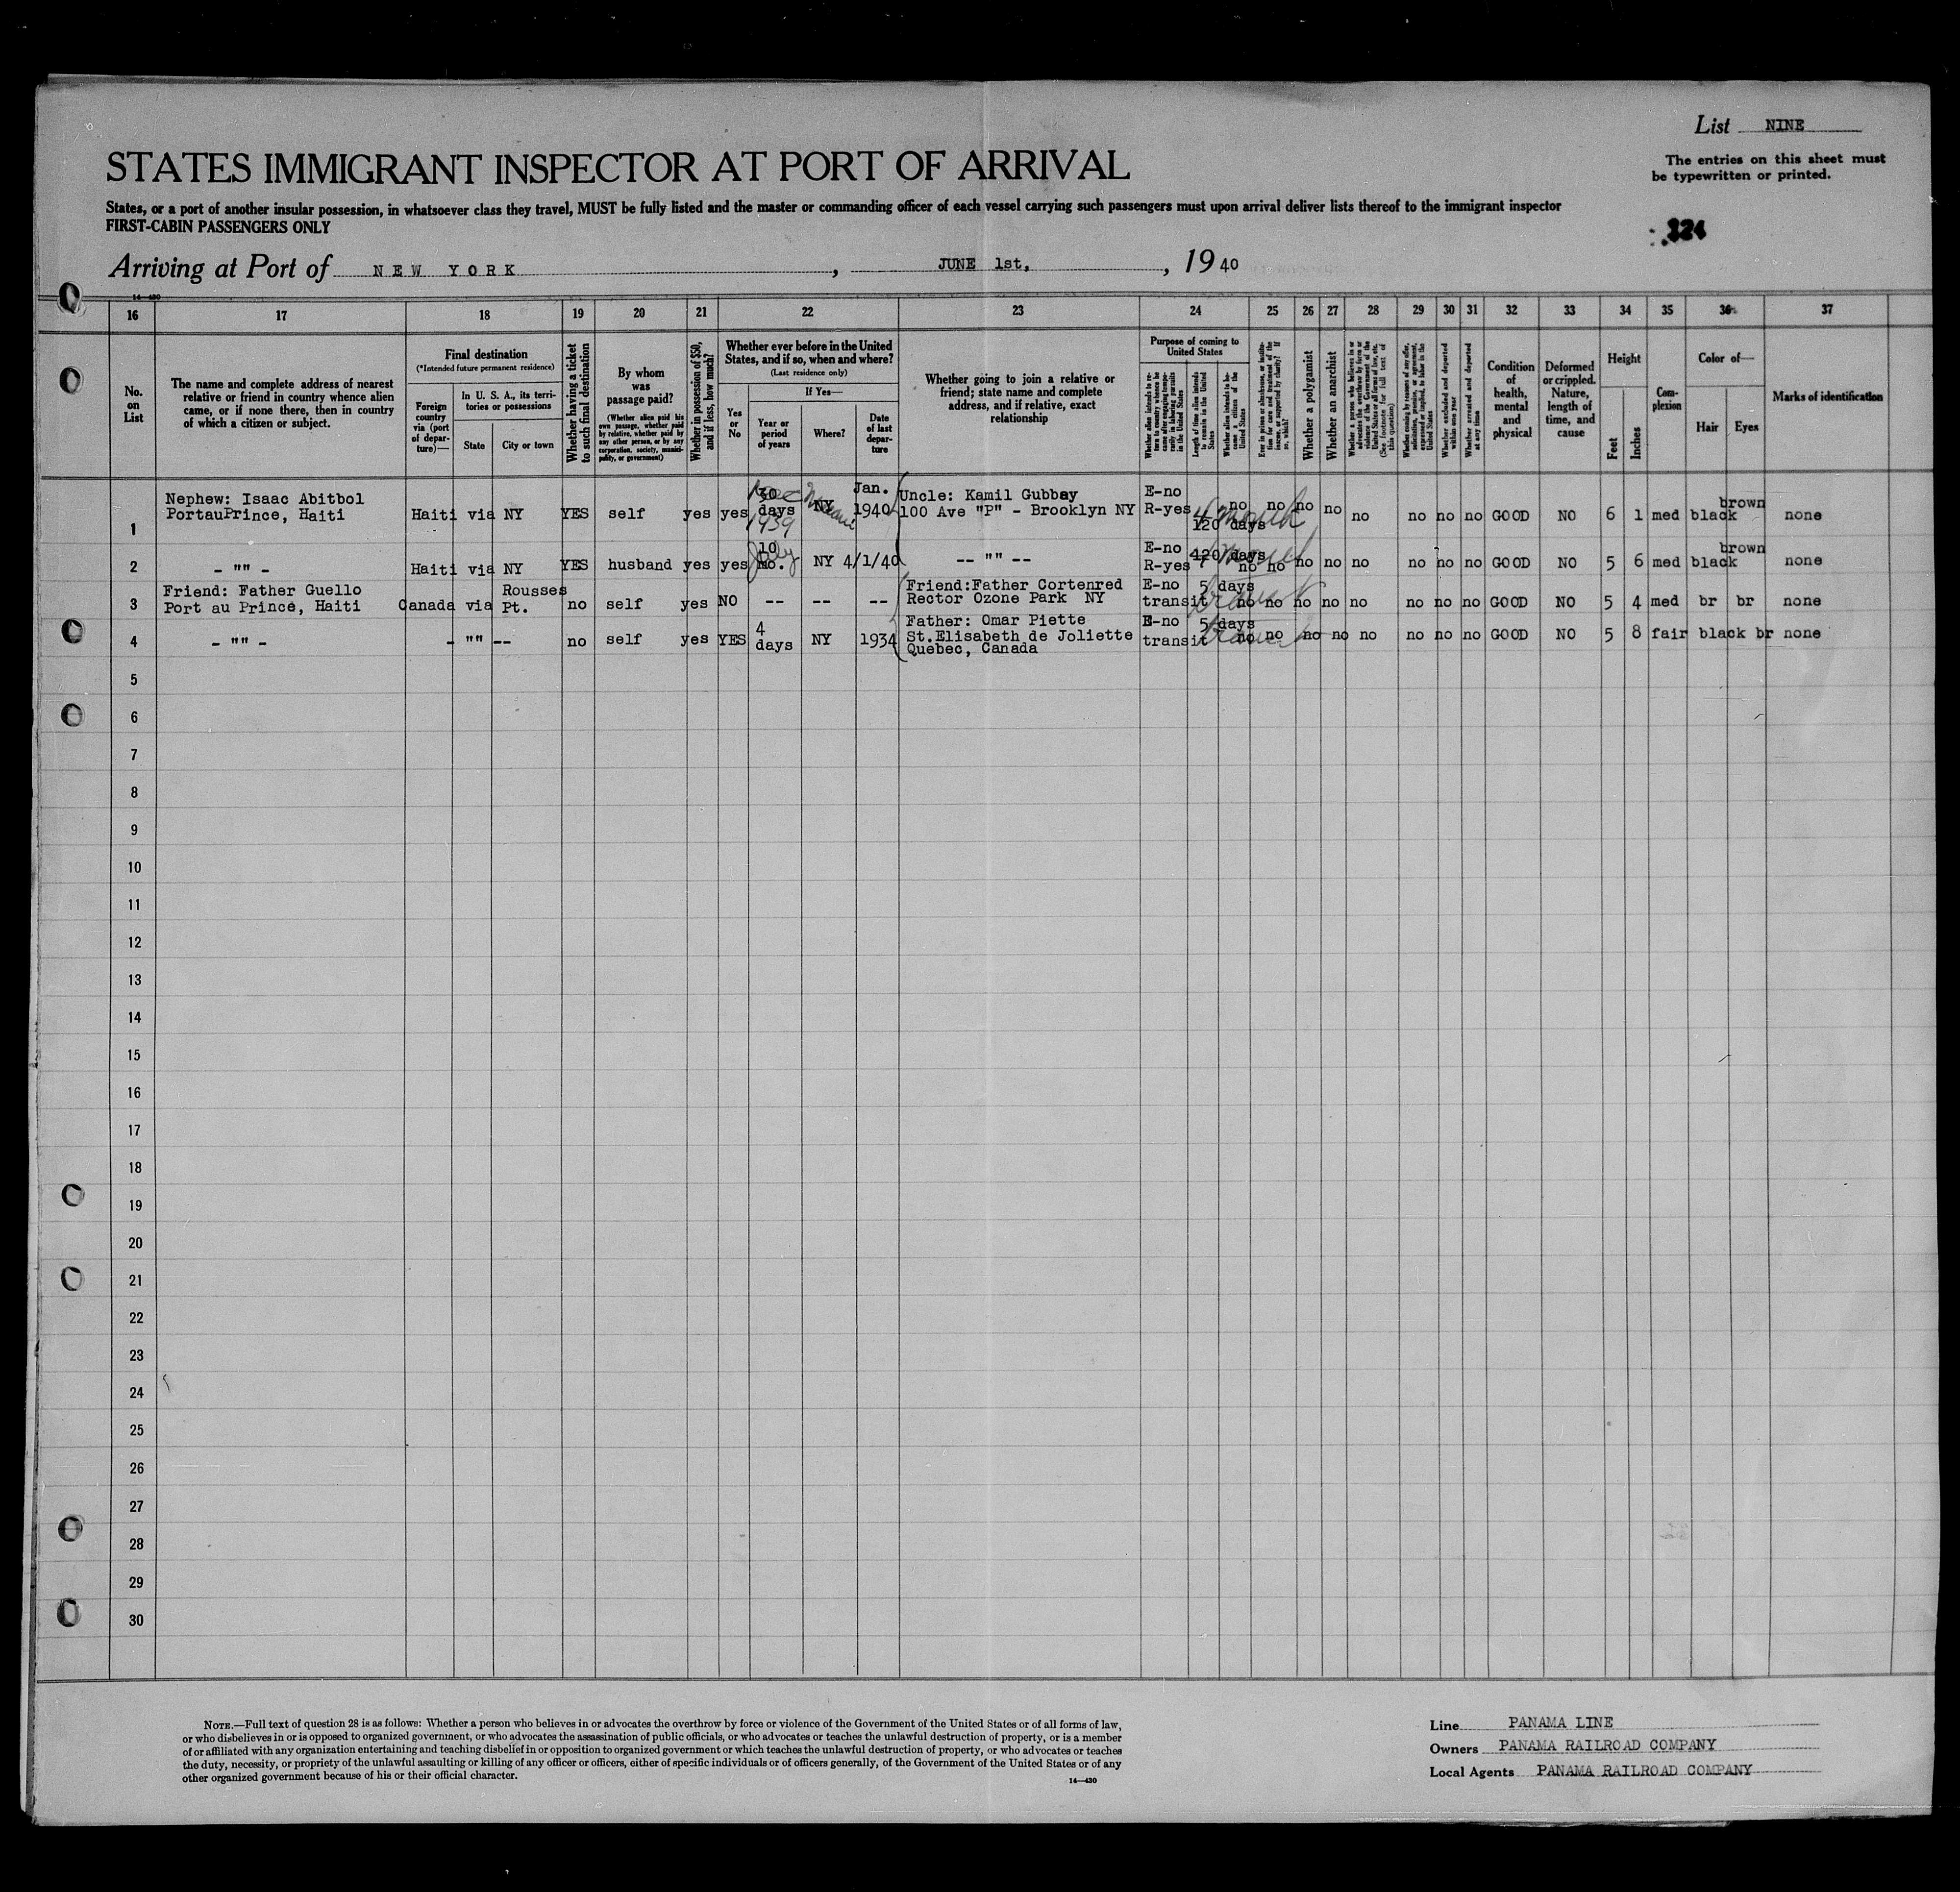 List NINE
The entries on this sheet must
be typewritten or printed.
STATES IMMIGRANT INSPECTOR AT PORT OF ARRIVAL
States, or a port of another insular possession, in whatsoever class they travel, MUST be fully listed and the master or commanding officer of each vessel carrying such passengers must upon arrival deliver lists thereof to the immigrant inspector
FIRST-CABIN PASSENGERS ONLY
324
Arriving at Port of NEW YORK, JUNE 1st, 1940
14—430
16 17 18 19 20 21 22 23 24 25 26 27 28 29 30 31 32 33 34 35 36 37
No.
on
List
The name and complete address of nearest
relative or friend in country whence alien
came, or if none there, then in country
of which a citizen or subject.
Final destination
(*Intended future permanent residence)
Foreign
country
via (port
of depar-
ture)—
In U. S. A., its terri-
tories or possessions
State
City or town
Whether having a ticket
to such final destination
By whom
was
passage paid?
(Whether alien paid his
own passage, whether paid
by relative, whether paid by
any other person, or by any
corporation, society, munici-
pality, or government)
Whether in possession of $50,
and if less, how much?
Whether ever before in the United
States, and if so, when and where?
(Last residence only)
Yes
or
No
If Yes—
Year or
period
of years
Where?
Date
of last
depar-
ture
Whether going to join a relative or
friend; state name and complete
address, and if relative, exact
relationship
Purpose of coming to
United States
Whether alien intends to re-
turn to country whence he
came after engaging tempo-
rarily in laboring pursuits
in the United States
Length of time alien intends
to remain in the United
States
Whether alien intends to be-
come a citizen of the
United States
Ever in prison or almshouse, or institu-
tion for care and treatment of the
insane, or supported by charity? If
so, which?
Whether a polygamist
Whether an anarchist
Whether a person who believes in or
advocates the overthrow by force or
violence of the Government of the
United States or all forms of law, etc.
(See footnote for full text of
this question)
Whether coming by reason of any offer,
solicitation, promise, or agreement,
expressed or implied, to labor in the
United States
Whether excluded and deported
within one year
Whether arrested and deported
at any time
Condition
of
health,
mental
and
physical
Deformed
or crippled.
Nature,
length of
time, and
cause
Height
Feet
Inches
Com-
plexion
Color of—
Hair
Eyes
Marks of identification
1 Nephew: Isaac Abitbol
PortauPrince, Haiti
Haiti via NY YES self yes yes 30 days Dec 1939 NY Miami Jan. 1940
Uncle: Kamil Gubbay
100 Ave "P" - Brooklyn NY
E-no
R-yes 120 days 4 months no no no no no no no no GOOD NO 6 1 med black brown none
2 - "" - Haiti via NY YES husband yes yes 10 mo. July NY 4/1/40 -- "" --
E-no
R-yes 120 days no no no no no no no no GOOD NO 5 6 med black brown none
3 Friend: Father Guello
Port au Prince, Haiti
Canada via Rousses Pt. no self yes NO -- -- --
Friend:Father Cortenred
Rector Ozone Park NY
E-no
transit 5 days transit no no no no no no no no GOOD NO 5 4 med br br none
4 - "" - - "" -- no self yes YES 4 days NY 1934
Father: Omar Piette
St.Elisabeth de Joliette
Quebec, Canada
E-no
transit 5 days transit no no no no no no no no GOOD NO 5 8 fair black br none
5
6
7
8
9
10
11
12
13
14
15
16
17
18
19
20
21
22
23
24
25
26
27
28
29
30
NOTE.—Full text of question 28 is as follows: Whether a person who believes in or advocates the overthrow by force or violence of the Government of the United States or of all forms of law,
or who disbelieves in or is opposed to organized government, or who advocates the assassination of public officials, or who advocates or teaches the unlawful destruction of property, or is a member
of or affiliated with any organization entertaining and teaching disbelief in or opposition to organized government or which teaches the unlawful destruction of property, or who advocates or teaches
the duty, necessity, or propriety of the unlawful assaulting or killing of any officer or officers, either of specific individuals or of officers generally, of the Government of the United States or of any
other organized government because of his or their official character.
14—430
Line PANAMA LINE
Owners PANAMA RAILROAD COMPANY
Local Agents PANAMA RAILROAD COMPANY